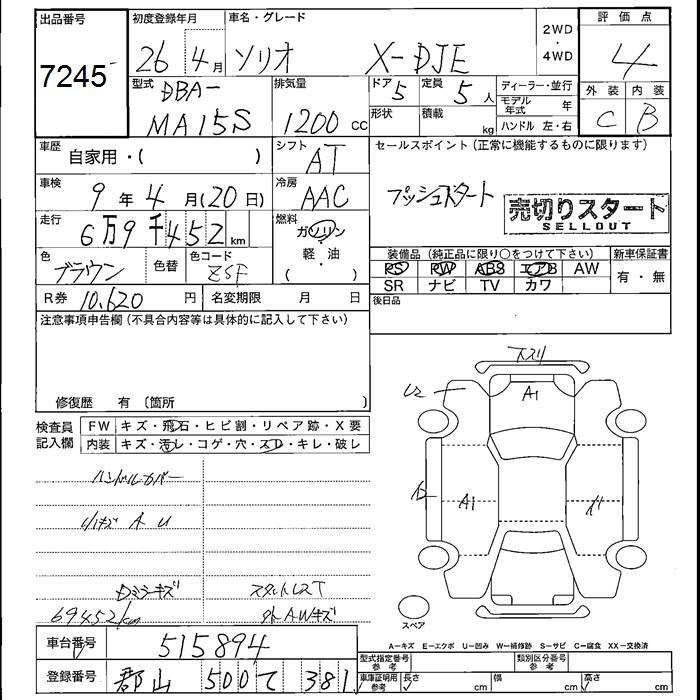 出品番号 初度登録年月 車名・グレード 2WD・4WD 評価点
7245 26年4月 ソリオ X-DJE 4
型式 排気量 ドア 5 定員 5人 ディーラー・並行 外装 内装
DBA-
MA15S 1200 cc 形状 積載 kg モデル年式 年 C B
ハンドル 左・右
車歴 自家用・( ) シフト AT セールスポイント(正常に機能するものに限ります)
車検 9年4月(20日) 冷房 AAC プッシュスタート 売切りスタート
SELLOUT
走行 6万9千452km 燃料 ガソリン・軽・油 ( )
色 ブラウン 色替 色コード ZSF
装備品(純正品に限り○をつけて下さい) 新車保証書
PS PW ABS エアB AW 有・無
SR ナビ TV カワ
R券 10,620円 名変期限 月 日 後日品
注意事項申告欄(不具合内容等は具体的に記入して下さい)
修復歴 有 〔箇所 〕
検査員記入欄 FW キズ・飛石・ヒビ割・リペア跡・X要
内装 キズ・汚レ・コゲ・穴・スレ・キレ・破レ
ハンドルカバー
A U
Dミラーキズ
69452km
A1
A1
スペア
A=キズ E=エクボ U=凹み W=補修跡 S=サビ C=腐食 XX=交換済
車台番号 515894
登録番号 郡山 500 て 381
型式指定番号 参考 類別区分番号 参考
車庫証明用 参考 長さ cm 幅 cm 高さ cm